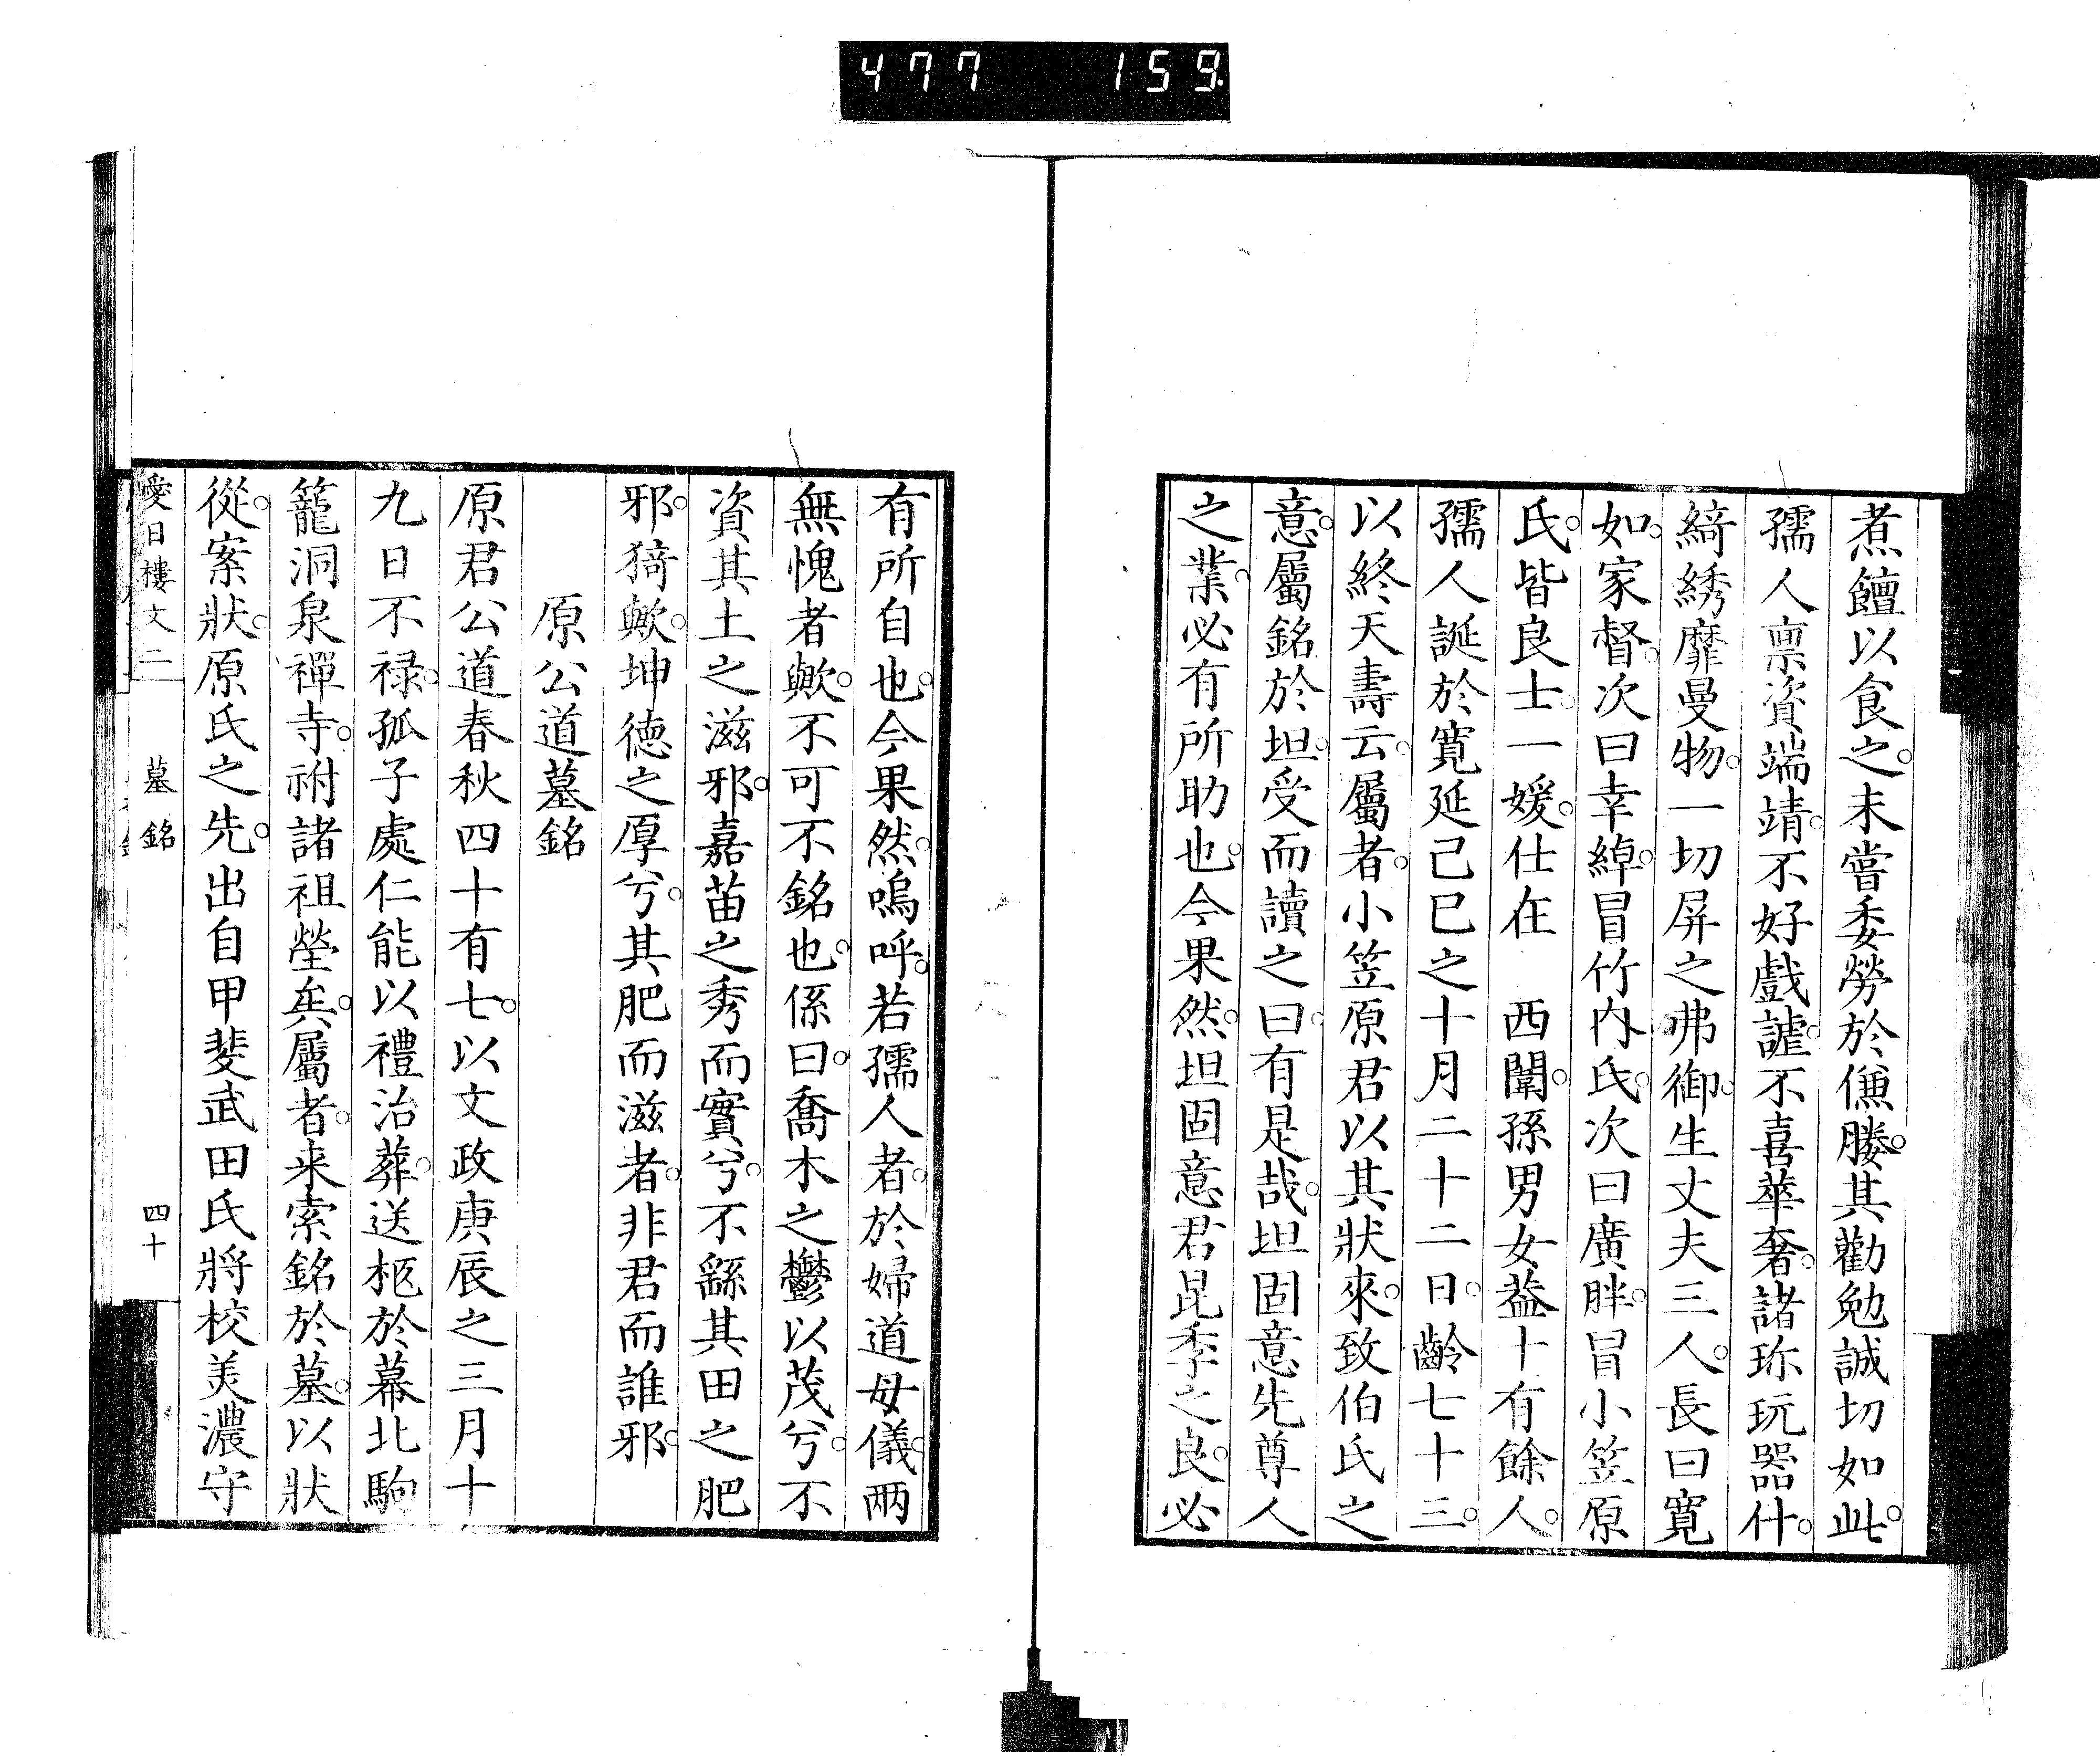 477 159
煮饘以食之。未嘗委勞於傔媵。其勸勉誠切如此。
孺人禀資端靖。不好戲謔。不喜華奢。諸珎玩器什。
綺綉靡曼物。一切屏之弗御。生丈夫三人。長曰寛
如。家督。次曰幸綽。冒竹内氏。次曰廣胖。冒小笠原
氏。皆良士。一媛。仕在　西闈。孫男女葢十有餘人。
孺人誕於寛延己巳之十月二十二日。齡七十三。
以終天壽云。屬者。小笠原君以其狀來。致伯氏之
意。屬銘於坦。受而讀之。曰。有是哉。坦固意先尊人
之業。必有所助也。今果然。坦固意君昆季之良。必
有所自也。今果然。嗚呼。若孺人者。於婦道母儀。兩
無愧者歟。不可不銘也。係曰。喬木之鬱以茂兮。不
資其土之滋邪。嘉苗之秀而實兮。不繇其田之肥
邪。猗歟。坤德之厚兮。其肥而滋者。非君而誰邪。
原公道墓銘
原君公道春秋四十有七。以文政庚辰之三月十
九日不禄。孤子處仁能以禮治葬。送柩於幕北駒
籠洞泉禪寺。祔諸祖塋矣。屬者。来索銘於墓。以狀
從。案狀。原氏之先。出自甲斐武田氏將校美濃守
愛日樓文二　墓銘　四十